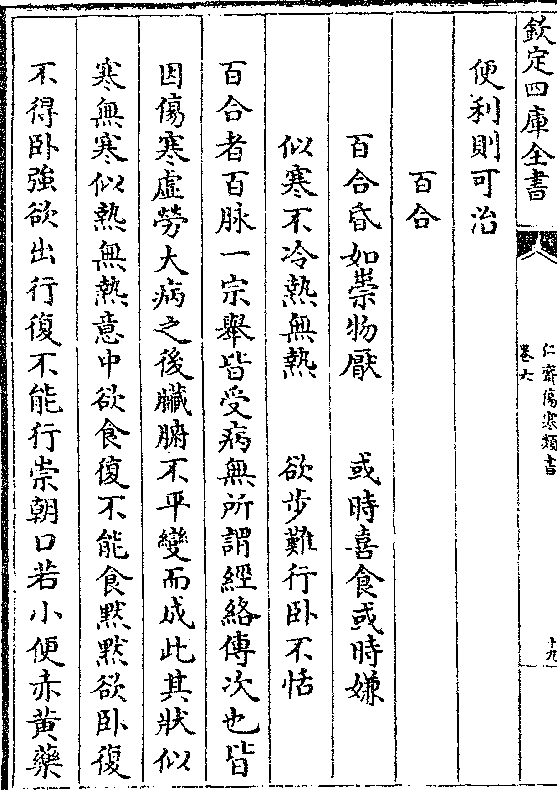 欽定四庫全書
仁齋傷寒類書
卷六
十九
便利則可治
百合
百合昏如祟物厭　或時喜食或時嫌
似寒不冷熱無熱　欲步難行卧不恬
百合者百脉一宗舉皆受病無所謂經絡傳次也皆
因傷寒虛勞大病之後臟腑不平變而成此其狀似
寒無寒似熱無熱意中欲食復不能食黙黙欲卧復
不得卧強欲出行復不能行祟朝口若小便赤黄藥